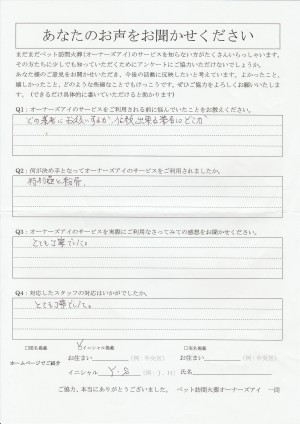 あなたのお声をお聞かせください
まだまだペット訪問火葬(オーナーズアイ)のサービスを知らない方がたくさんいらっしゃいます。
その方たちに少しでも知っていただくためにアンケートにご協力いただけないでしょうか。
あなた様のご意見をお聞かせいただき、今後の活動に反映したいと考えています。よかったこと、
嬉しかったこと、どのような些細なことでもけっこうです。ぜひご協力をよろしくお願いいたしま
す。(できるだけ具体的に書いていただけると助かります)
Q1：オーナーズアイのサービスをご利用される前に悩んでいたことをお教えください。
どの業者にお願いするか、信頼出来る業者はどこか
Q2：何が決め手となってオーナーズアイのサービスをご利用されましたか。
Q3：オーナーズアイのサービスを実際にご利用なさってみての感想をお聞かせください。
とても丁寧でした。
Q4：対応したスタッフの対応はいかがでしたか。
とても丁寧でした。
ホームページでご紹介
□イニシャル掲載 □実名掲載
お住まい (例：中央区) お住まい (例：中央区)
イニシャル Y・S (例：J．H) 氏名
ご協力、本当にありがとうございました。 ペット訪問火葬オーナーズアイ 一同